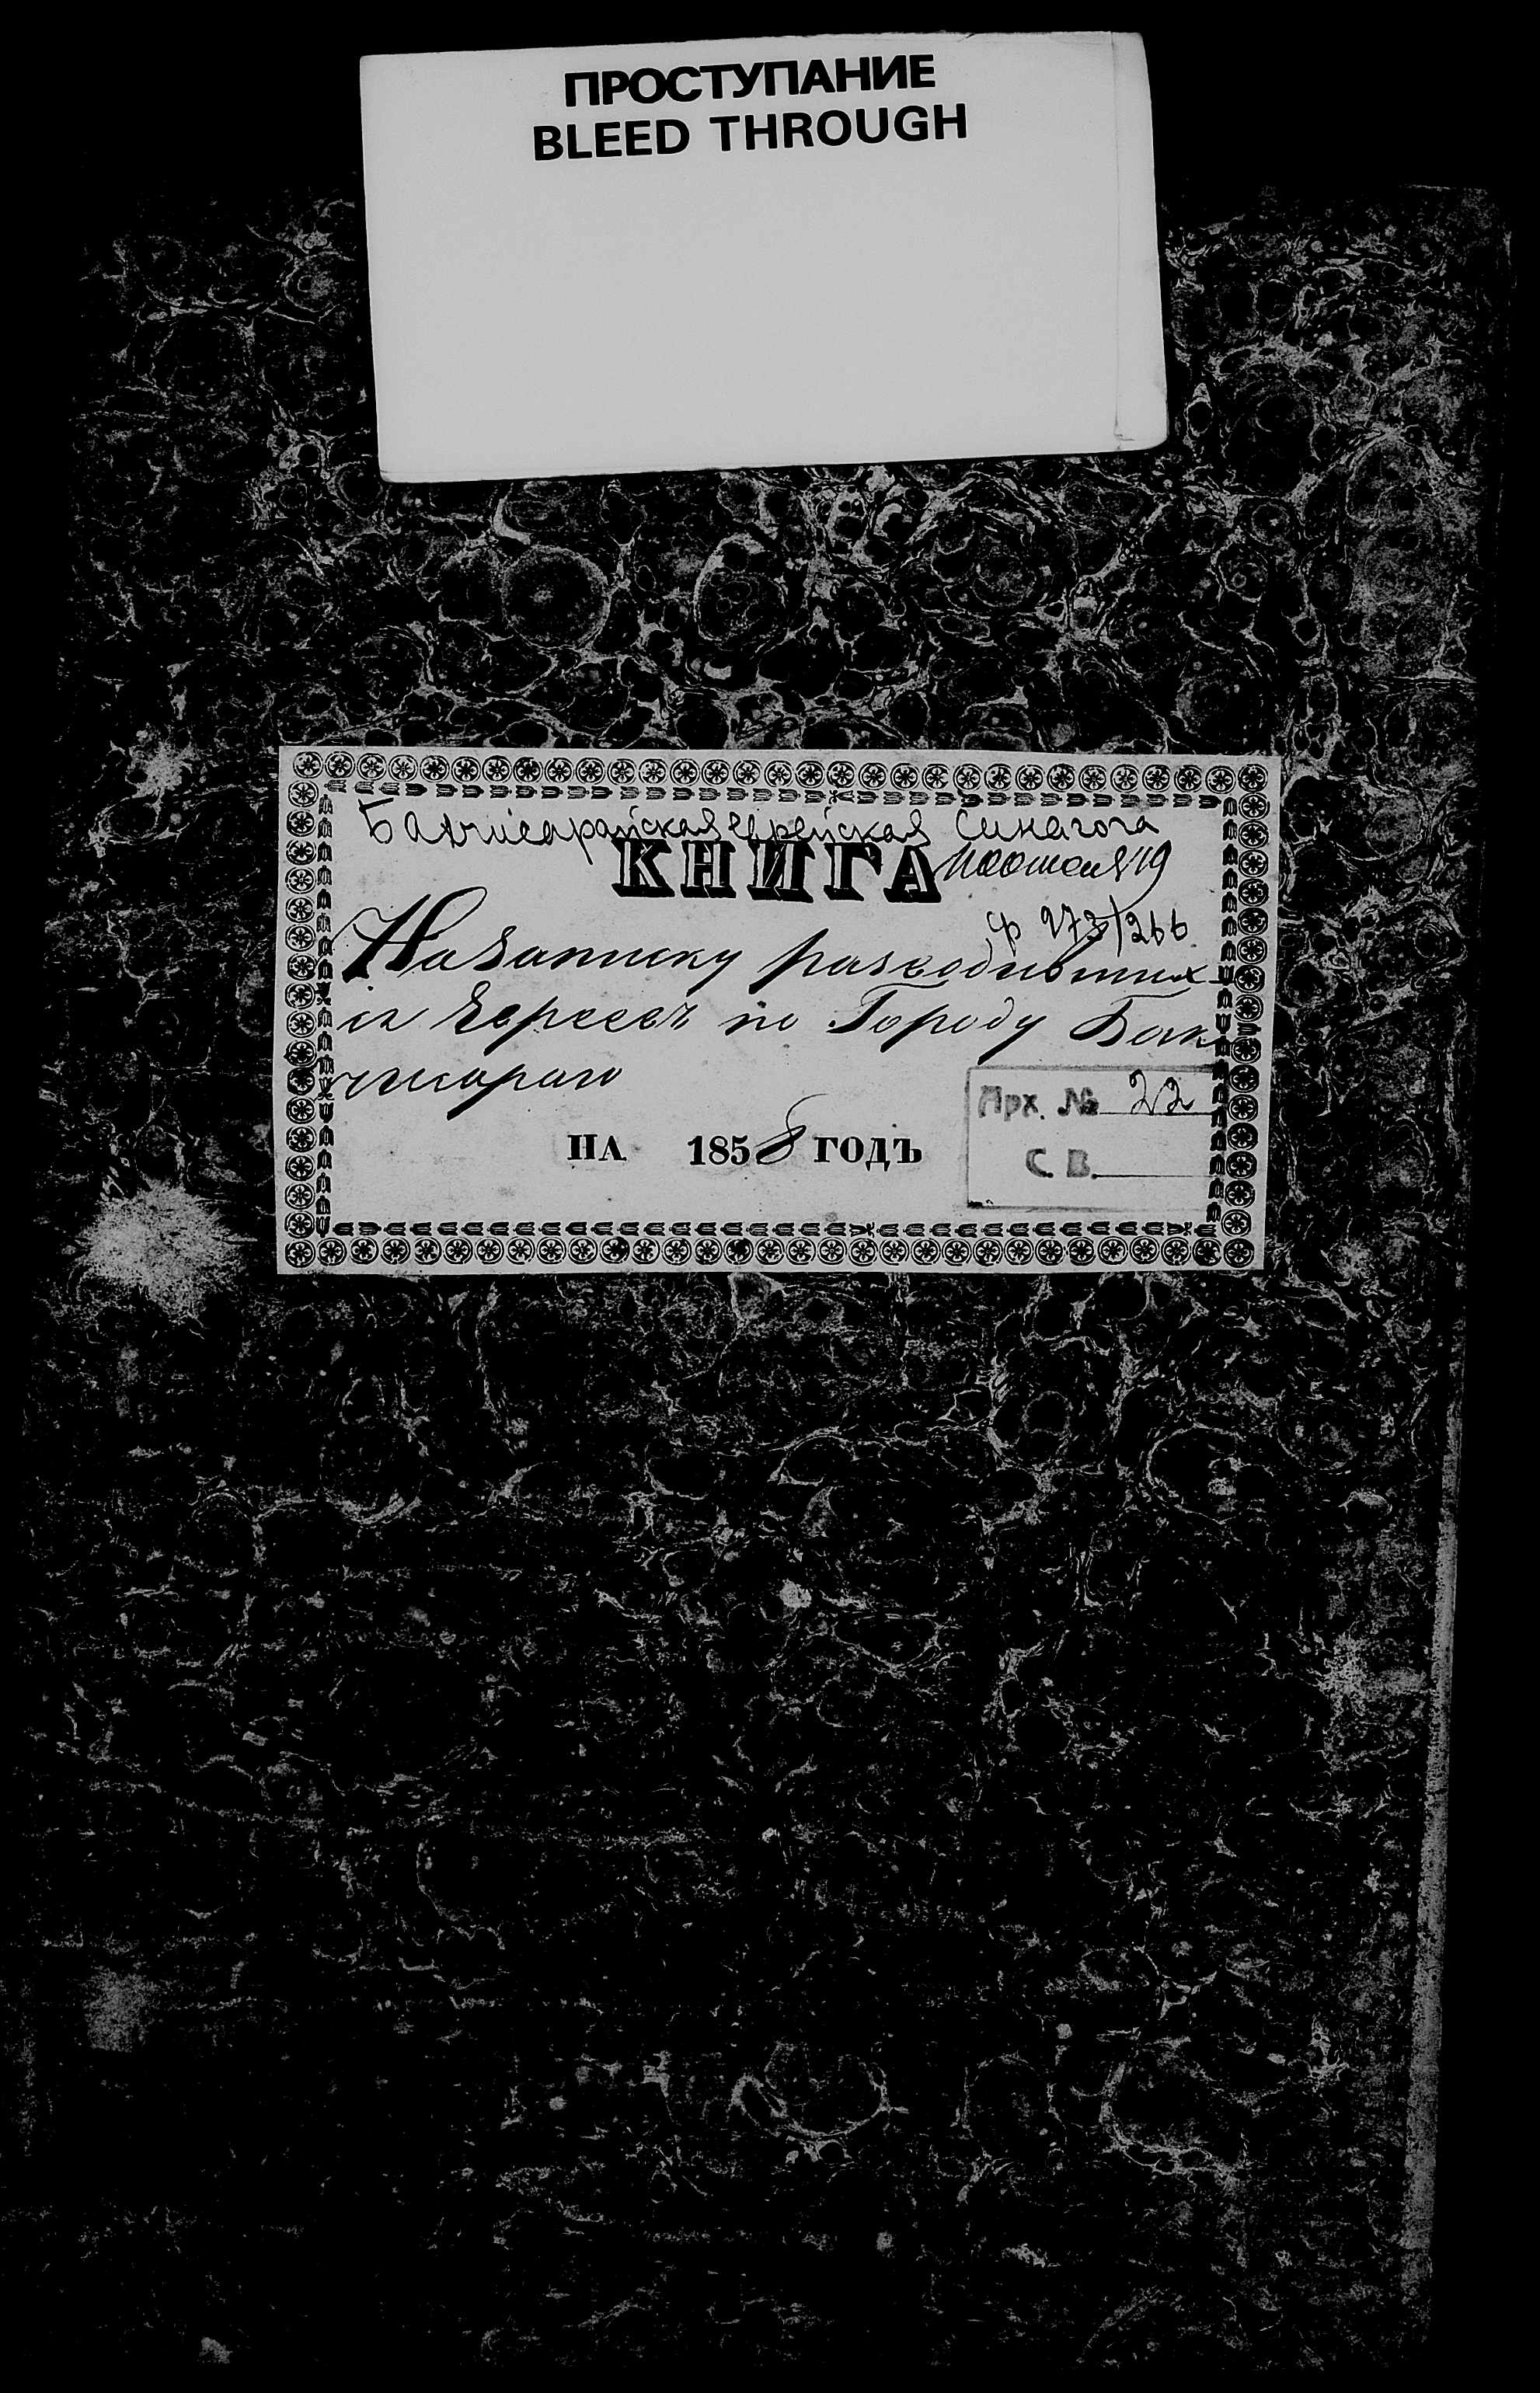 ПРОСТУПАНИЕ
BLEED THROUGH
Бахчисарайская еврейская Синагога
КНИГА
№19
Ф 273/266
На записку разводивших
ся Евреевъ по Городу Бах
чисараю
Арх. № 22
НА 1858 ГОДЪ
С. В.